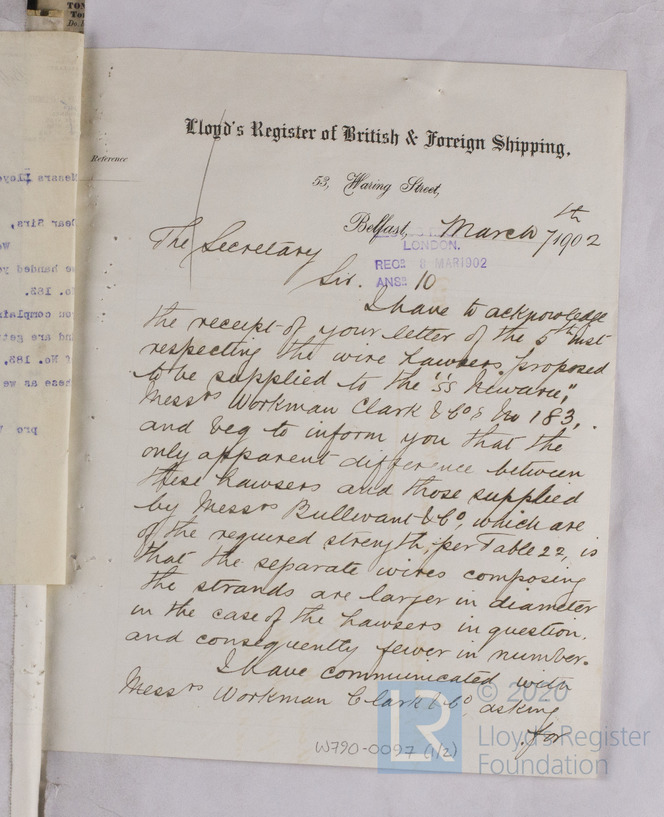 Lloyd's Register of British & Foreign Shipping.
Reference
53, Waring Street,
Belfast, March 7th 1902
LONDON.
RECD 8 MAR 1902
ANSD 10
The Secretary
Sir.
I have to acknowledge
the receipt of your letter of the 5th inst
respecting the wire hawsers proposed
to be supplied to the "SS
Messrs Workman Clark & Co's No 183,
and beg to inform you that the
only apparent difference between
these hawsers and those supplied
by Messrs Bullivant & Co, which are
of the required strength, per Table 22, is
that the separate wires composing
the strands are larger in diameter
in the case of the hawsers in question.
and consequently fewer in number.
I have communicated with
Messrs Workman Clark & Co, asking
for
W790-0097 (1/2)
LR
© 2020
Lloyd's Register
Foundation
Messrs Lloyd
Dear Sirs,
we handed yo
No. 183.
you complain
and are gett
of No. 183,
these as we
pro